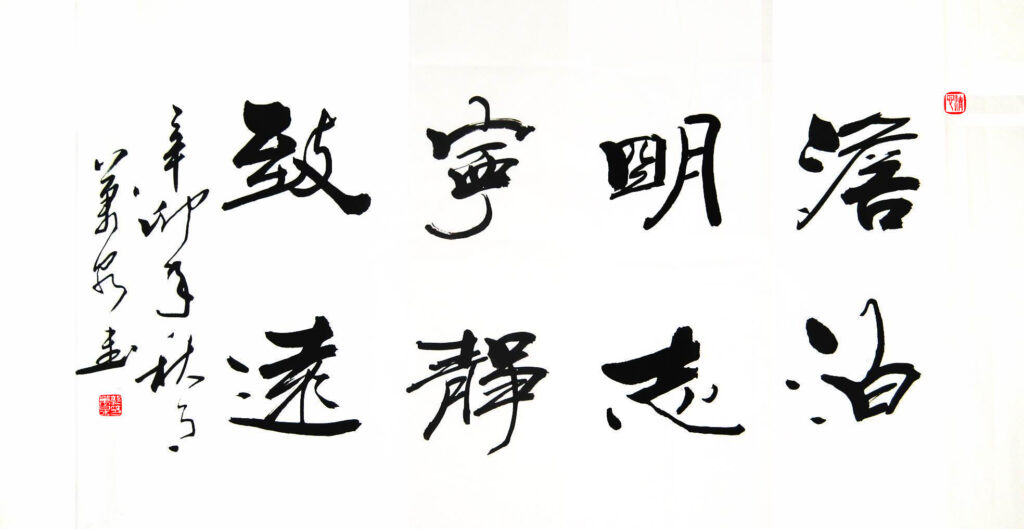 澹泊
明志
寧靜
致遠
辛卯年秋月
萬泉書